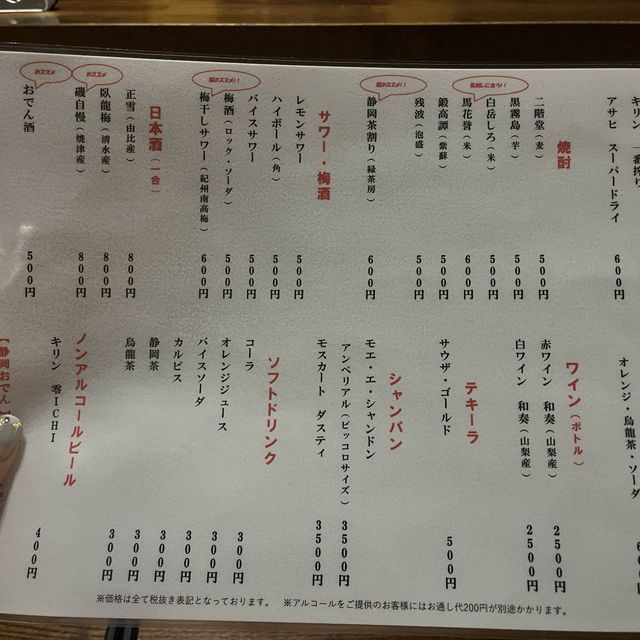 キリン 一番搾り
アサヒ スーパードライ 600円
焼酎
二階堂（麦） 500円
黒霧島（芋） 500円
白岳しろ（米） 500円
馬花誉（米） 600円
鍛高譚（紫蘇） 500円
残波（泡盛） 500円
超おススメ!!
静岡茶割り（緑茶房） 600円
サワー・梅酒
レモンサワー 500円
ハイボール（角） 500円
バイスサワー 500円
梅酒（ロック・ソーダ） 500円
超おススメ!!
梅干しサワー（紀州南高梅） 600円
日本酒（一合）
正雪（由比産） 800円
臥龍梅（清水産） 800円
おススメ
磯自慢（焼津産） 800円
おススメ
おでん酒 500円
オレンジ・烏龍茶・ソーダ
ワイン（ボトル）
赤ワイン 和奏（山梨産） 2500円
白ワイン 和奏（山梨産） 2500円
テキーラ
サウザ・ゴールド 500円
シャンパン
モエ・エ・シャンドン
アンペリアル（ピッコロサイズ） 3500円
モスカート ダスティ 3500円
ソフトドリンク
コーラ 300円
オレンジジュース 300円
バイスソーダ 300円
カルピス 300円
静岡茶 300円
烏龍茶 300円
ノンアルコールビール
キリン 零ICHI 400円
【静岡おでん】
※価格は全て税抜き表記となっております。 ※アルコールをご提供のお客様にはお通し代200円が別途かかります。